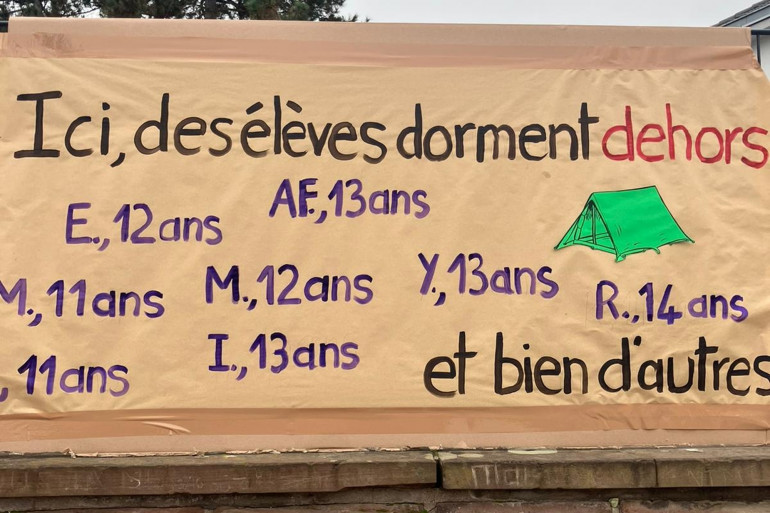 Ici, des élèves dorment dehors
AF., 13 ans
E., 12 ans
M., 11 ans
M., 12 ans
Y., 13 ans
R., 14 ans
I., 13 ans
, 11 ans
et bien d'autres